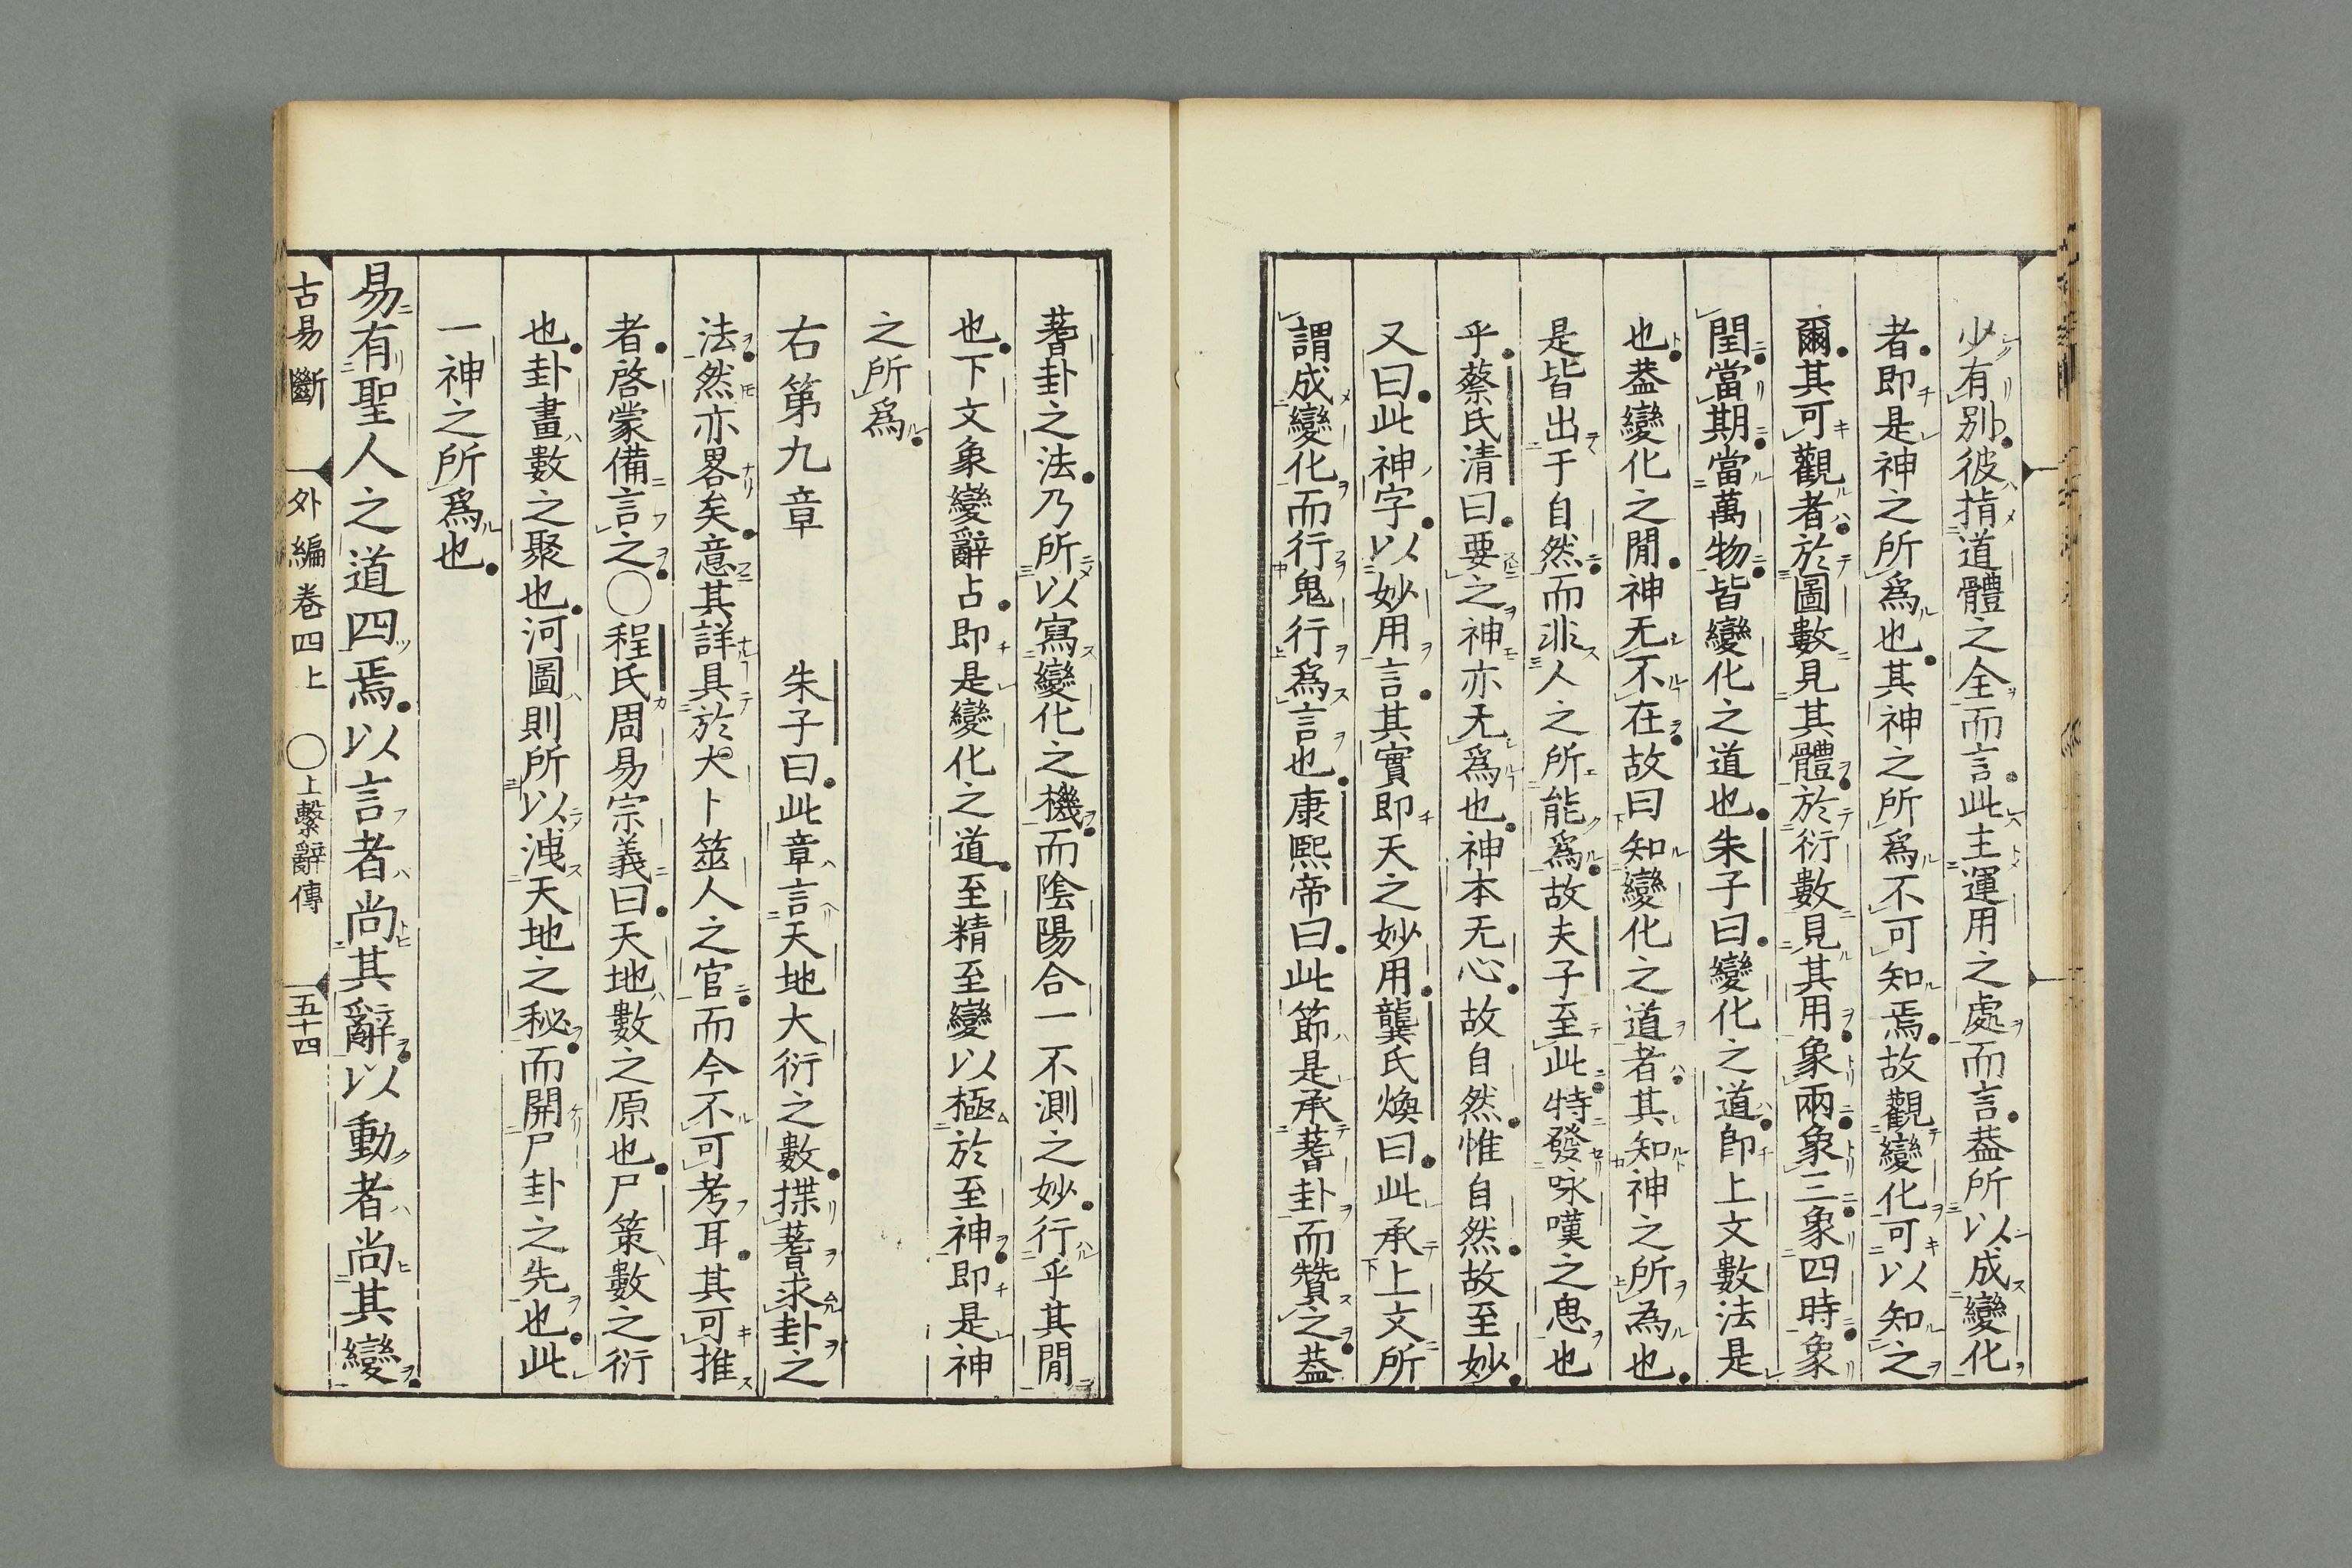 少有別彼指道體之全而言此主運用之處而言葢所以成變化
者即是神之所爲也其神之所爲不可知焉故觀變化可以知之
爾其可觀者於圖數見其體於衍數見其用象兩象三象四時象
閏當期當萬物皆變化之道也朱子曰變化之道卽上文數法是
也葢變化之閒神无不在故曰知變化之道者其知神之所為也
是皆出于自然而非人之所能爲故夫子至此特發咏嘆之思也
乎蔡氏清曰要之神亦无爲也神本无心故自然惟自然故至妙
又曰此神字以妙用言其實即天之妙用龔氏煥曰此承上文所
謂成變化而行鬼行爲言也康熙帝曰此節是承蓍卦而贊之葢
蓍卦之法乃所以寫變化之機而陰陽合一不測之妙行乎其閒
也下文象變辭占即是變化之道至精至變以極於至神即是神
之所爲
右第九章 朱子曰此章言天地大衍之數揲蓍求卦之
法然亦畧矣意其詳具於大卜筮人之官而今不可考耳其可推
者啓蒙備言之〇程氏周易宗義曰天地數之原也尸策數之衍
也卦畫數之聚也河圖則所以洩天地之秘而開尸卦之先也此
一神之所爲也
易有聖人之道四焉以言者尚其辭以動者尚其變
古易斷 外編卷四上 〇上繫辭傳 五十四